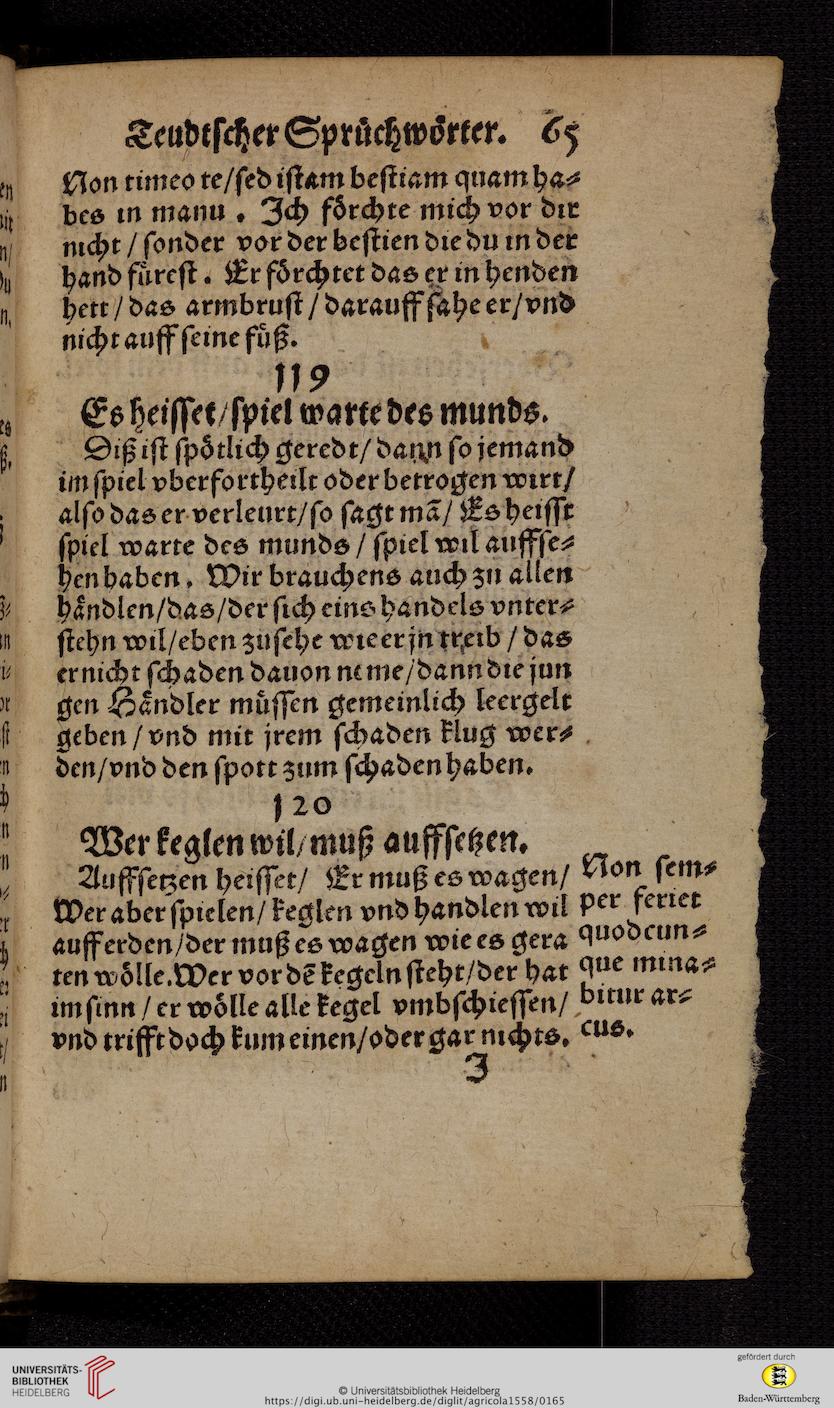 Teudtſcher Spruͤchwoͤrter. 65
Non timeo te/ſed iſtam beſtiam quam ha⸗
bes in manu . Jch foͤrchte mich vor dir
nicht / ſonder vor der beſtien die du in der
hand fuͤreſt. Er foͤrchtet das er in henden
hett / das armbruſt / darauff ſahe er/vnd
nicht auff ſeine fuͤß.
119
Es heiſſet/ſpiel warte des munds.
Diß iſt ſpoͤtlich geredt/ dann ſo jemand
im ſpiel vberfortheilt oder betrogen wirt/
alſo das er verleurt/ſo ſagt mã/ Es heiſſt
ſpiel warte des munds / ſpiel wil auffſe⸗
hen haben. Wir brauchens auch zu allen
haͤndlen/das/der ſich eins handels vnter⸗
ſtehn wil/eben zuſehe wie er jn treib / das
er nicht ſchaden dauon neme/dann die jun
gen Haͤndler muͤſſen gemeinlich leergelt
geben / vnd mit jrem ſchaden klug wer⸗
den/vnd den ſpott zum ſchaden haben.
120
Wer keglen wil/muß auffſetzen.
Auffſetzen heiſſet/ Er muß es wagen/
Wer aber ſpielen/ keglen vnd handlen wil
auff erden/der muß es wagen wie es gera
ten woͤlle.Wer vor dẽ kegeln ſteht/der hat
im ſinn / er woͤlle alle kegel vmbſchieſſen/
vnd trifft doch kum einen/oder gar nichts.
Non ſem⸗
per feriet
quodcun⸗
que mina⸗
bitur ar⸗
cus.
J
UNIVERSITÄTS-
BIBLIOTHEK
HEIDELBERG
© Universitätsbibliothek Heidelberg
https://digi.ub.uni-heidelberg.de/diglit/agricola1558/0165
gefördert durch
Baden-Württemberg